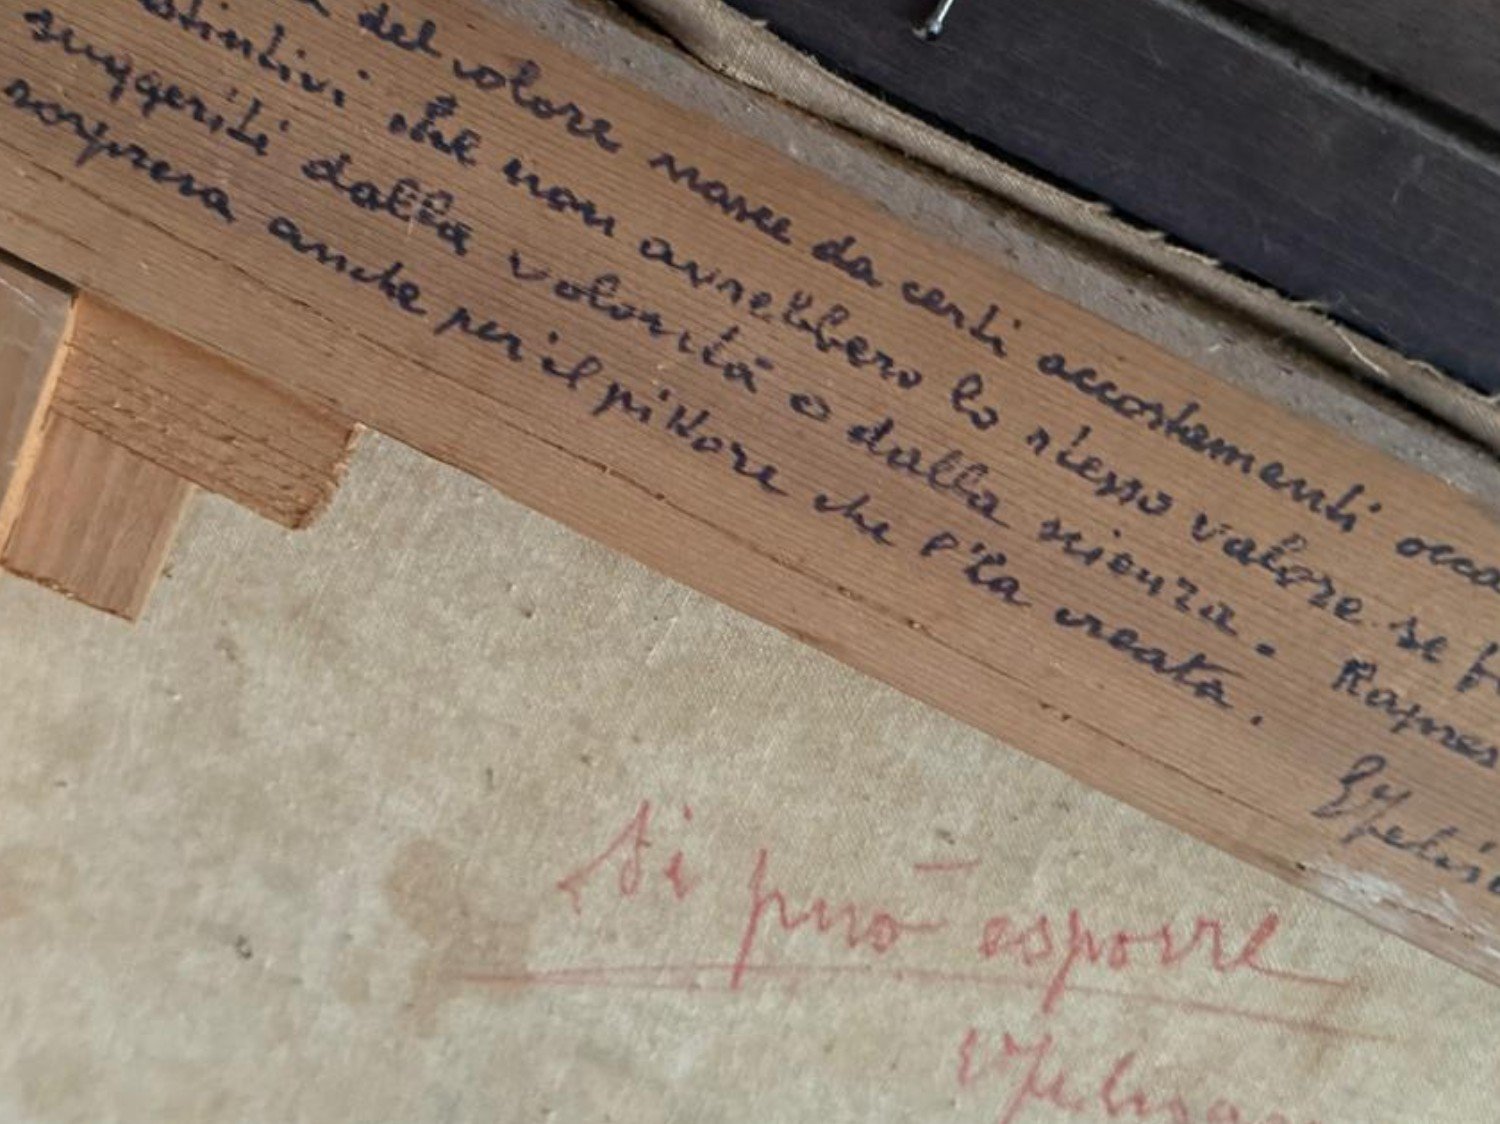 del colore nasce da certi accostamenti
istintivi che non avrebbero lo stesso valore se
suggeriti dalla volontà o dalla scienza.
sorpresa anche per il pittore che l'ha creata.
Si può esporre